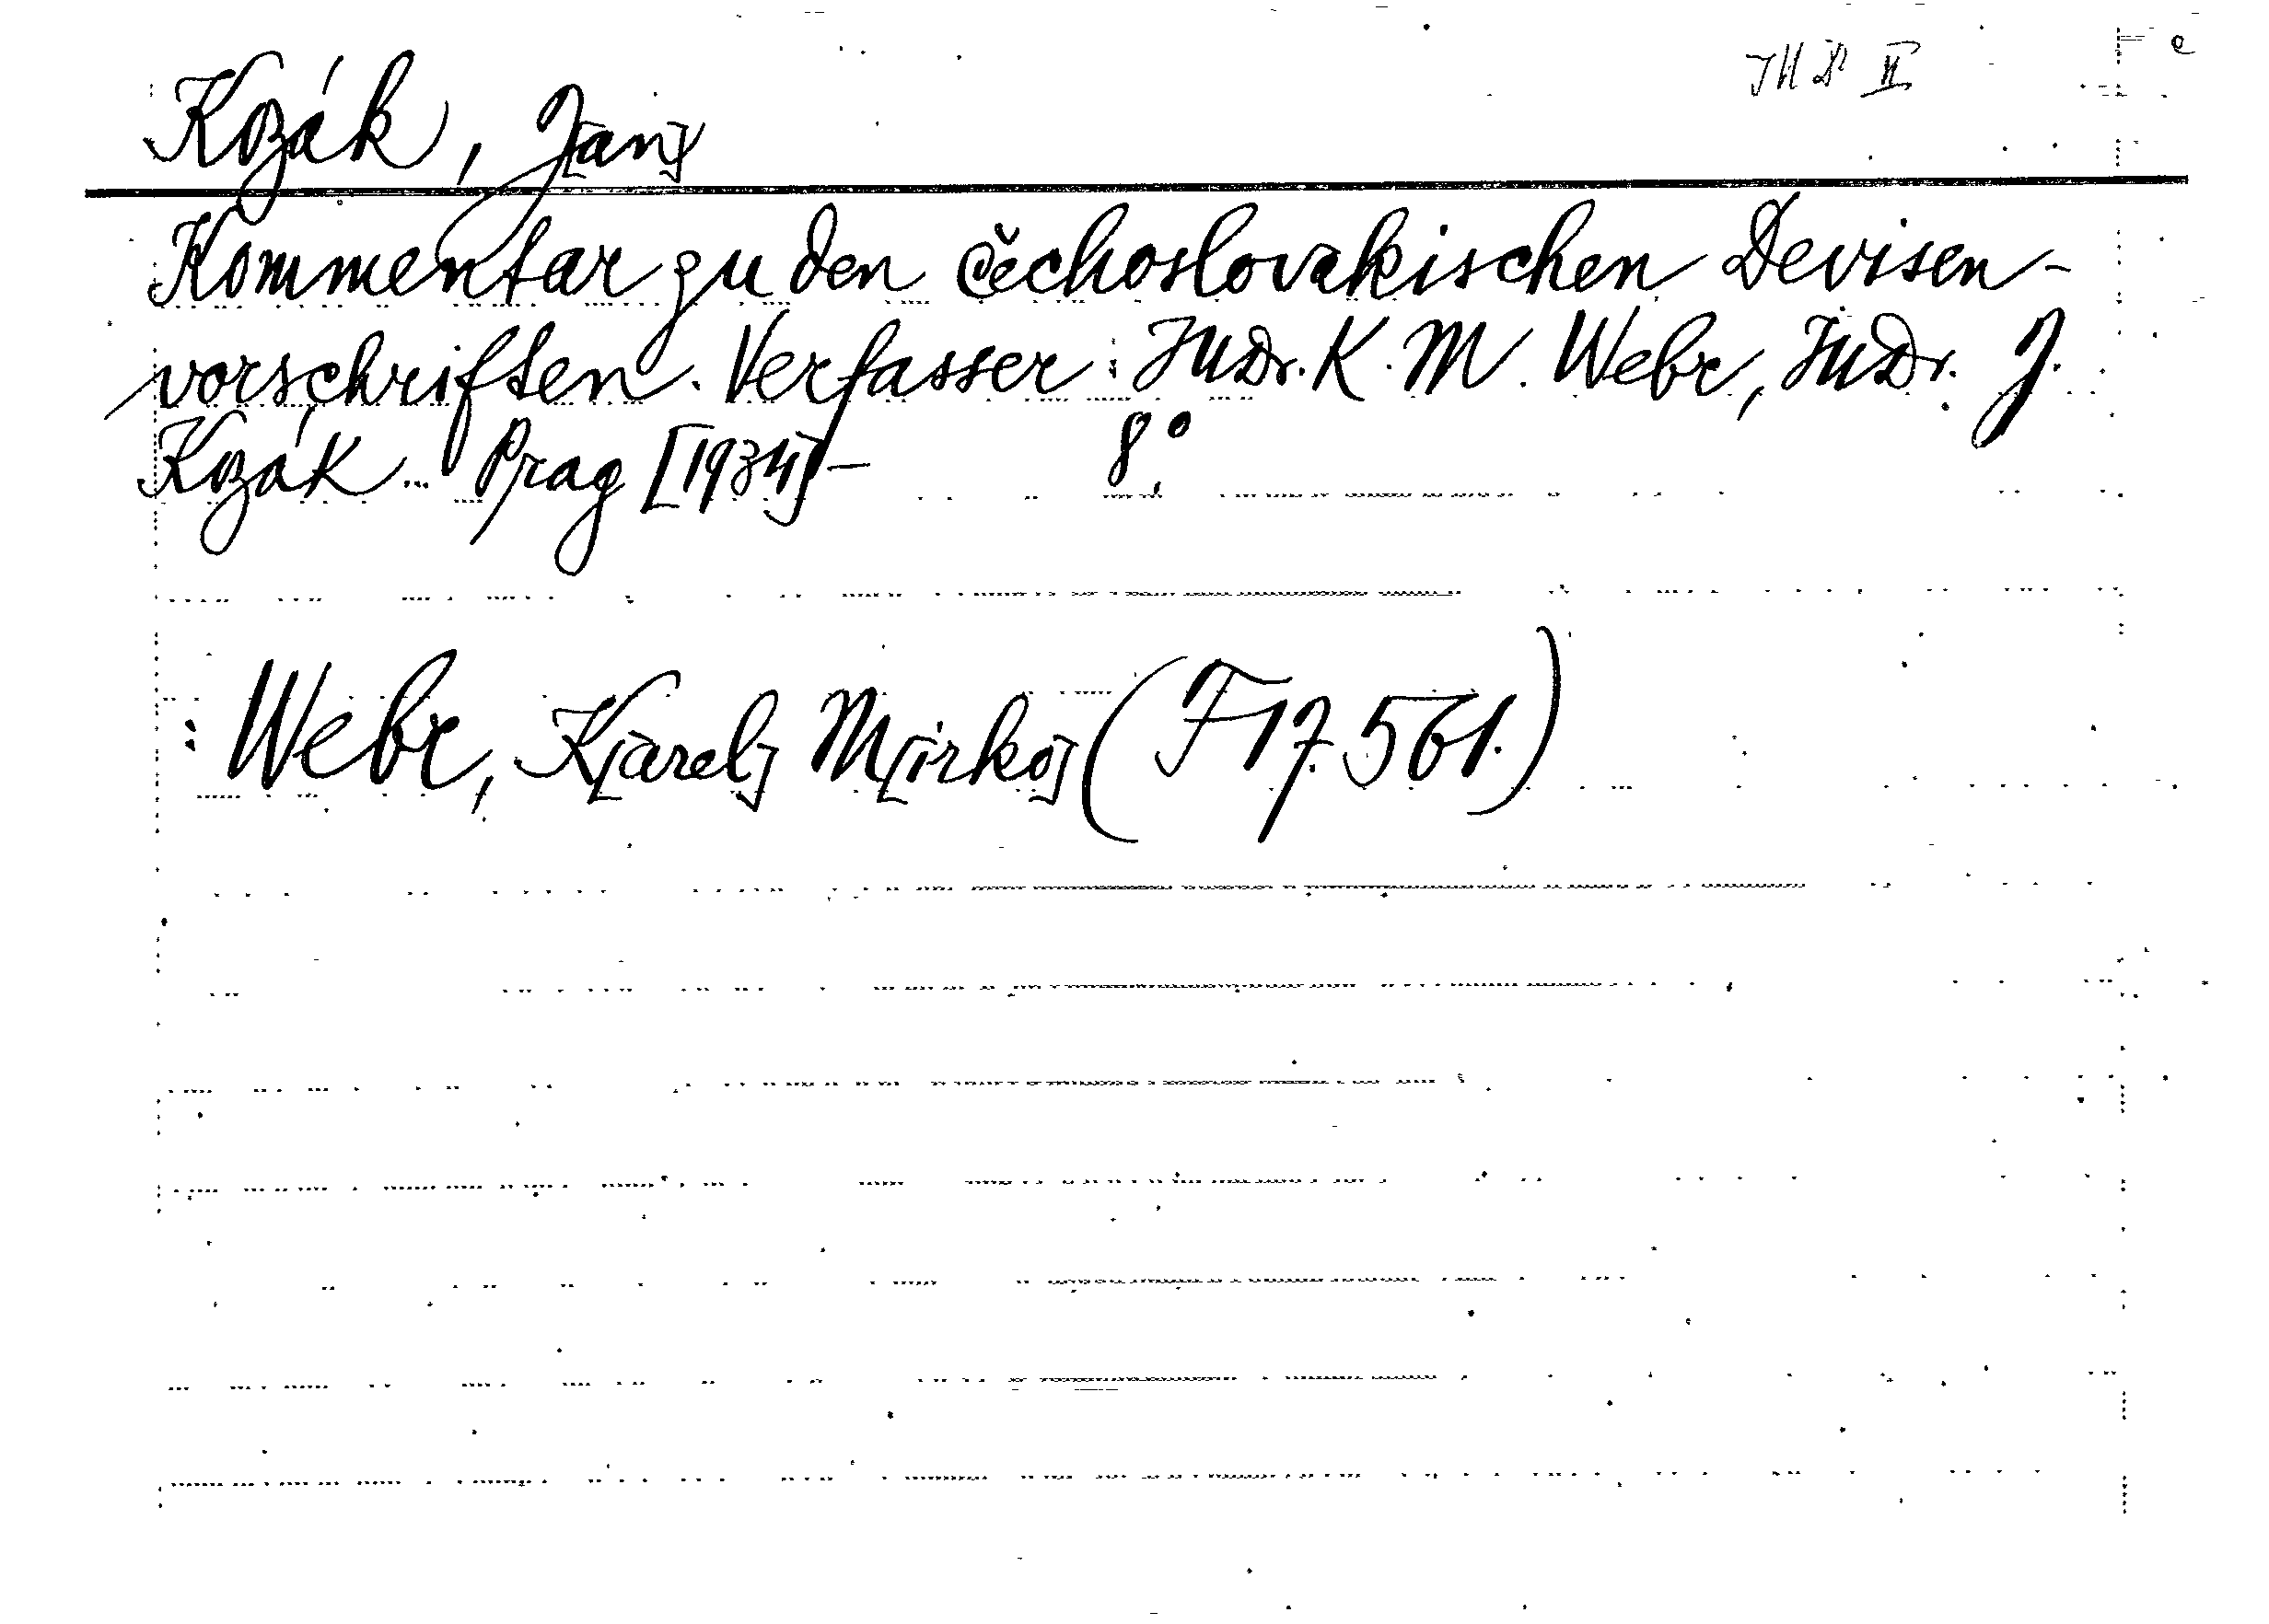 Kozák, J[an]
Kommentar zu den čechoslovakischen Devisen-
vorschriften. Verfasser: JUDr. K. M. Webr, JUDr. J.
Kozák... Prag [1934]- 8°.
: Webr, K[arel] M[irko] (F 17.561.)